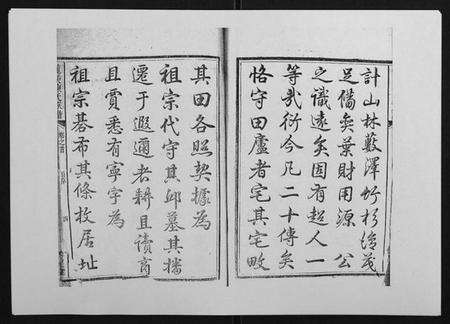 計山林藪澤竹杉陰茂
足備矣業財用源 公
之識遠矣固有超人一
等哉衍今凡二十傳矣
恪守田廬者宅其宅畋
其田各照契據為
祖宗代守其邱墓其播
遷于遐邇者耕且讀商
且賈悉有寧宇為
祖宗碁布其條故居址